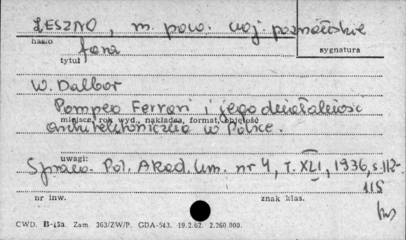 LESZNO, m. pow. woj poznańskie
hasło
fara
sygnatura
tytuł
W. Dalbor
Pompeo Ferrari i jego działalność
miejsce, rok wyd., nakładca, format, objętość
architektoniczna w Polsce.
uwagi:
Sprawo. Pol. Akad. Um. nr 4, T. XLI, 1936, s. 112-
115
nr inw.
znak klas.
CWD. B-15a. Zam. 363/ZW/P. GDA-543. 19.2.62. 2.260.000.